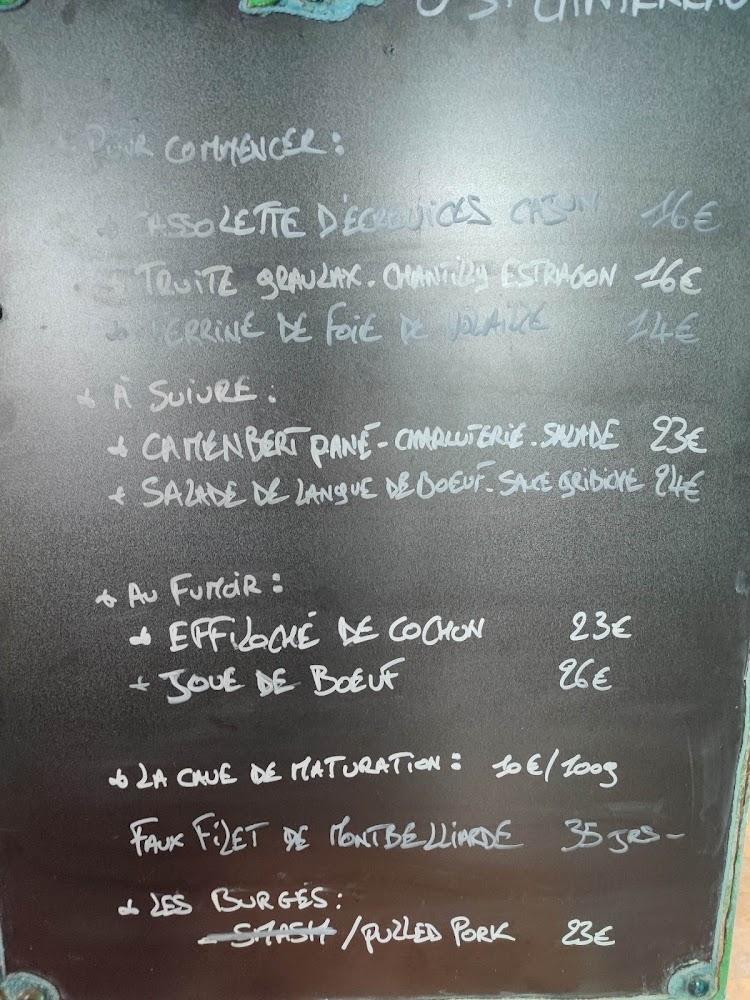 POUR COMMENCER :
CASSOLETTE D'ÉCREVICES CAJUN 16€
TRUITE GRAVLAX. CHANTILLY ESTRAGON 16€
TERRINE DE FOIE DE VOLAILLE 14€
À SUIVRE :
CAMENBERT PANÉ - CHARCUTERIE. SALADE 23€
SALADE DE LANGUE DE BOEUF. SAUCE GRIBICHE 24€
AU FUMOIR :
EFFILOCHÉ DE COCHON 23€
JOUE DE BOEUF 26€
LA CAVE DE MATURATION : 10€/100g
FAUX FILET DE MONTBELLIARDE 35 JRS -
LES BURGES :
SMASH / PULLED PORK 23€